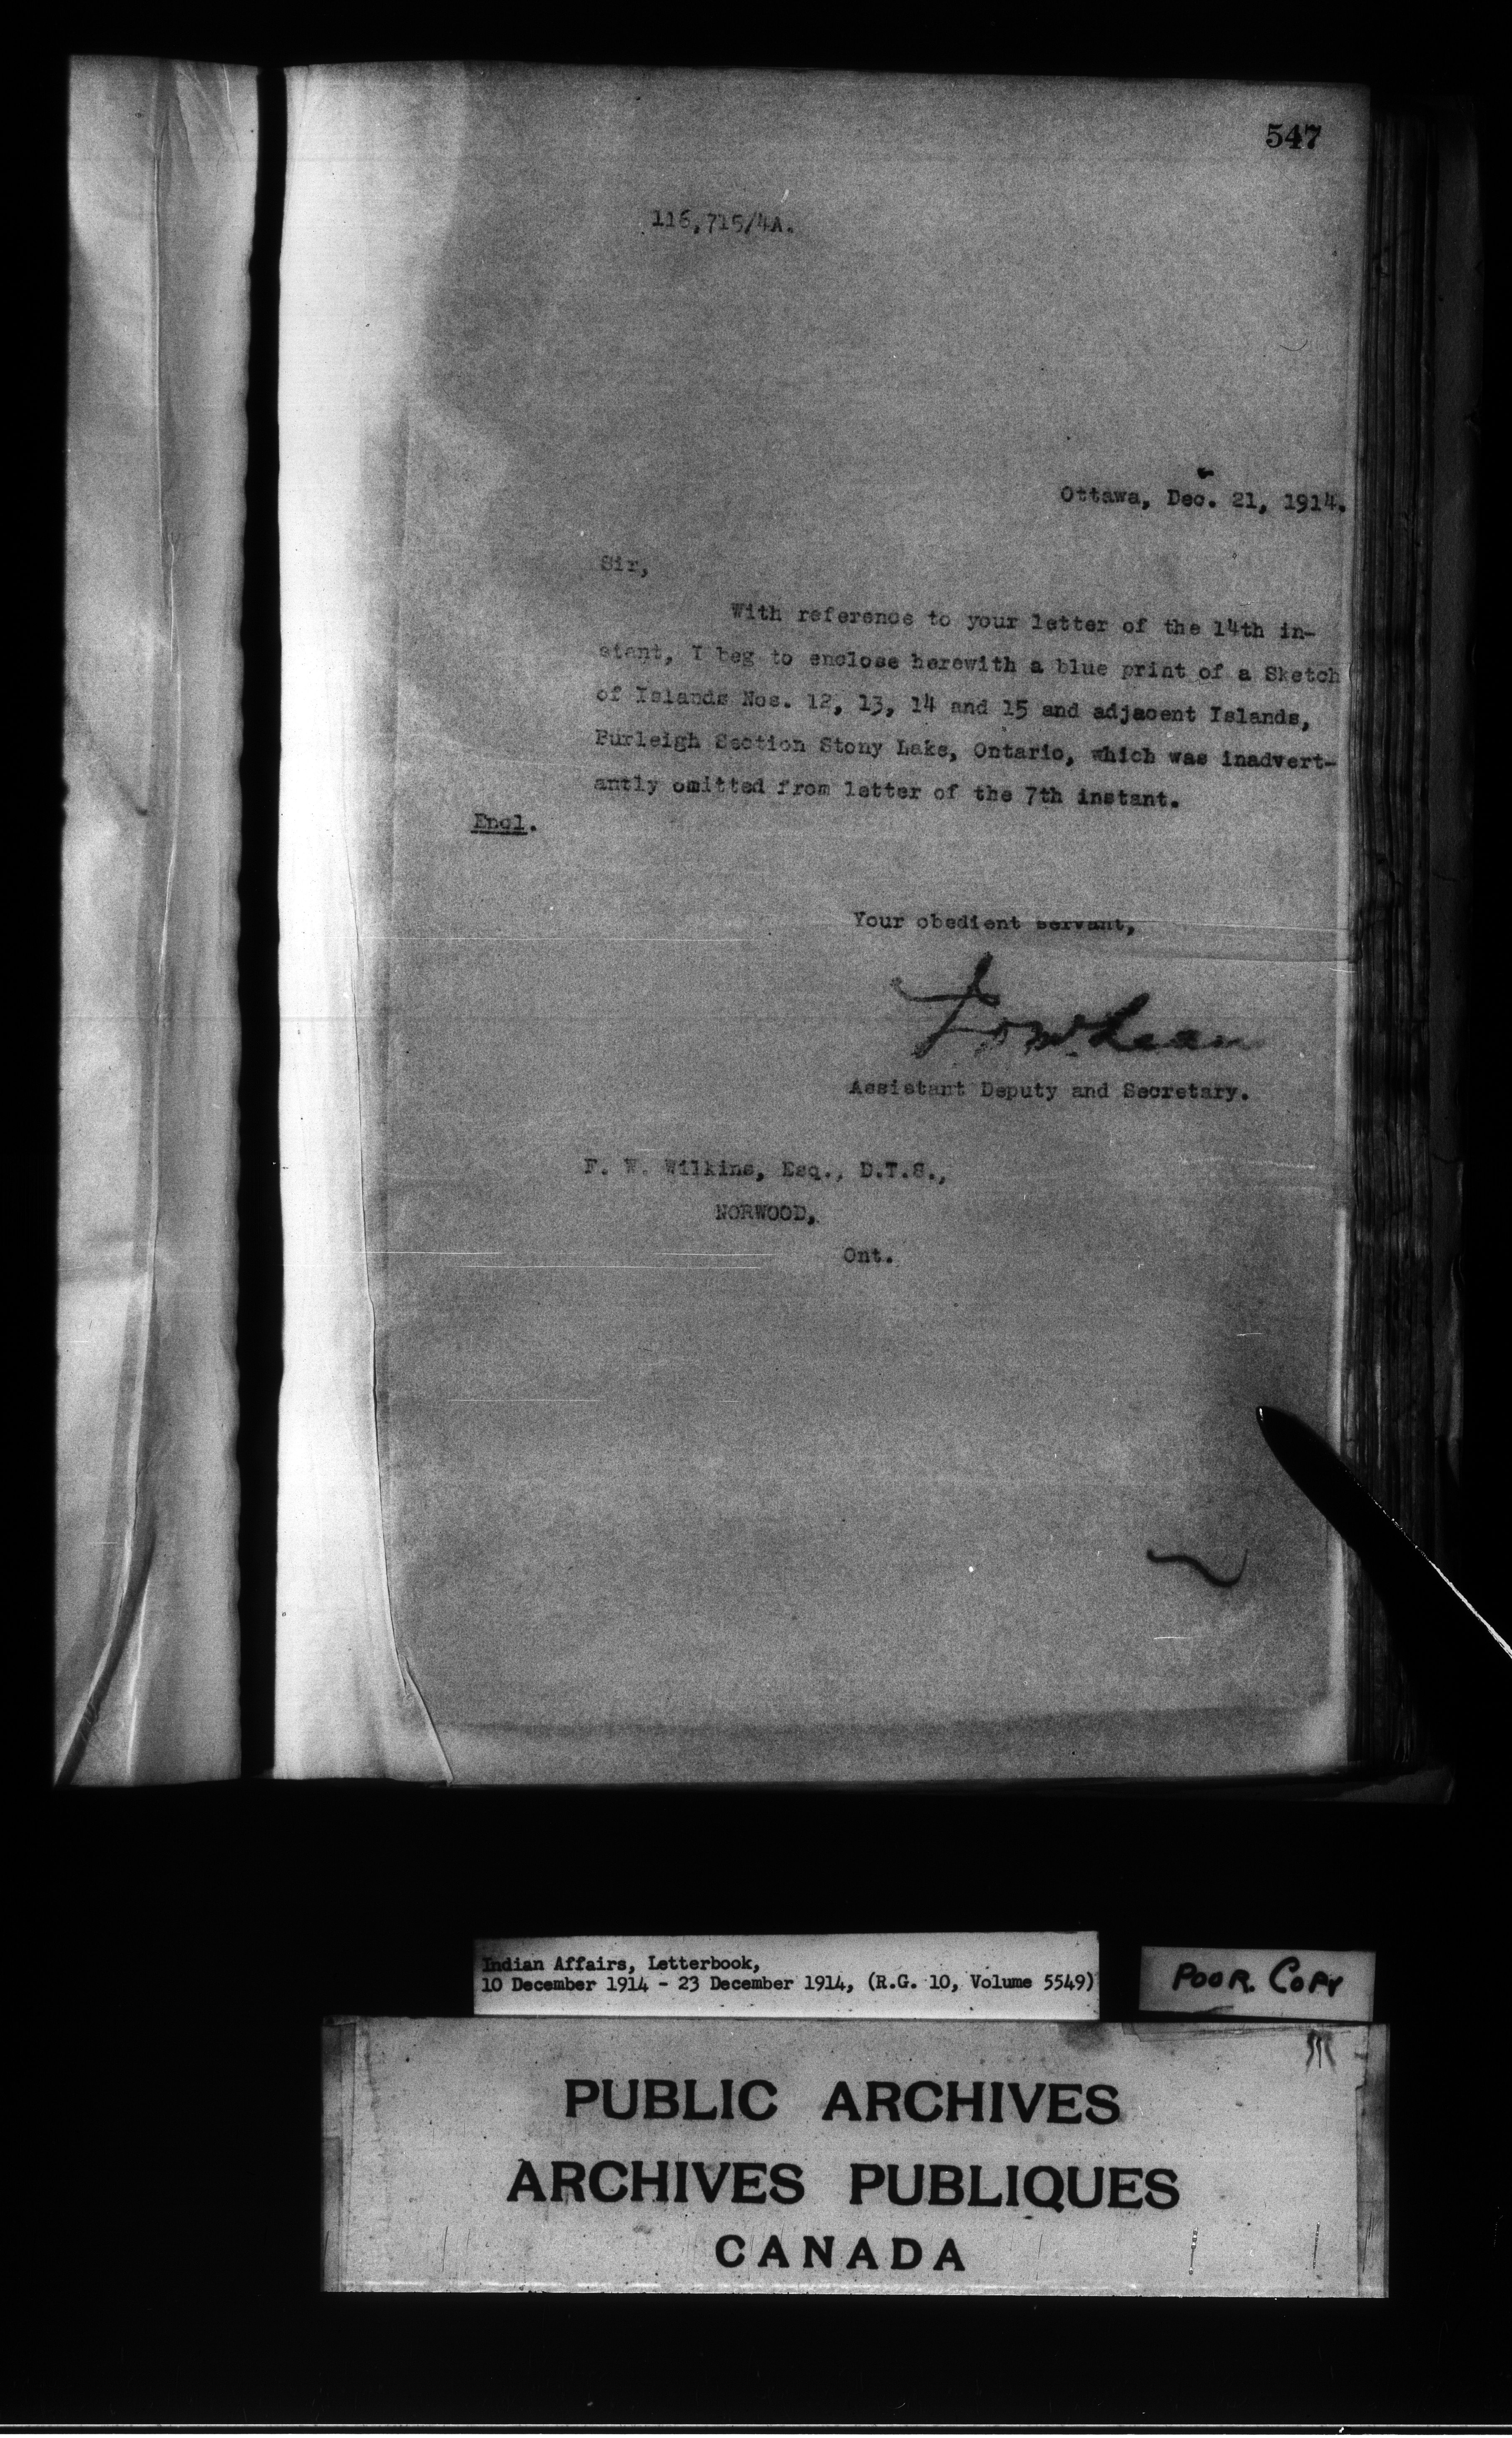 547
116,715/4A.
Ottawa, Dec. 21, 1914.
Sir,
With reference to your letter of the 14th in-
stant, I beg to enclose herewith a blue print of a Sketch
of Islands Nos. 12, 13, 14 and 15 and adjacent Islands,
Burleigh Section Stony Lake, Ontario, which was inadvert-
antly omitted from letter of the 7th instant.
Encl.
Your obedient servant,
Assistant Deputy and Secretary.
F. W. Wilkins, Esq., D.T.S.,
NORWOOD,
Ont.
Indian Affairs, Letterbook,
10 December 1914 - 23 December 1914, (R.G. 10, Volume 5549)
POOR COPY
PUBLIC ARCHIVES
ARCHIVES PUBLIQUES
CANADA